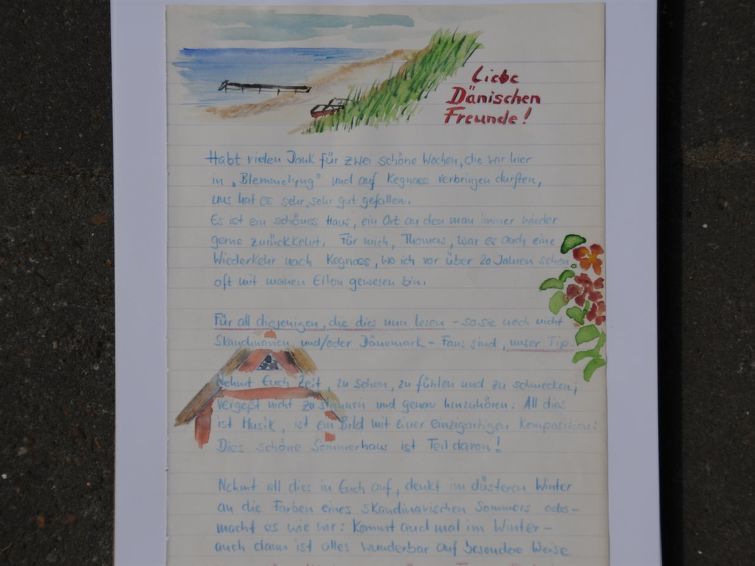 Liebe
Dänischen
Freunde!
Habt vielen Dank für zwei schöne Wochen, die wir hier
in „Blemmelyng" und auf Kegnaes verbringen durften,
uns hat es sehr, sehr gut gefallen.
Es ist ein schönes Haus, ein Ort an den man immer wieder
gerne zurückkehrt. Für mich, Thomas, war es auch eine
Wiederkehr nach Kegnaes, wo ich vor über 20 Jahren schon
oft mit meinen Eltern gewesen bin.
Für all diejenigen, die dies nun lesen - so sie noch nicht
Skandinavien und/oder Dänemark - Fan sind, unser Tip
Nehmt Euch Zeit, zu sehen, zu fühlen und zu schmecken,
vergeßt nicht zu staunen und genau hinzuhören: All dies
ist Musik, ist ein Bild mit einer einzigartigen Komposition:
Dies schöne Sommerhaus ist Teil davon!
Nehmt all dies in Euch auf, denkt im düsteren Winter
an die Farben eines skandinavischen Sommers oder -
macht es wie wir: Kommt auch mal im Winter -
auch dann ist alles wunderbar auf besondere Weise